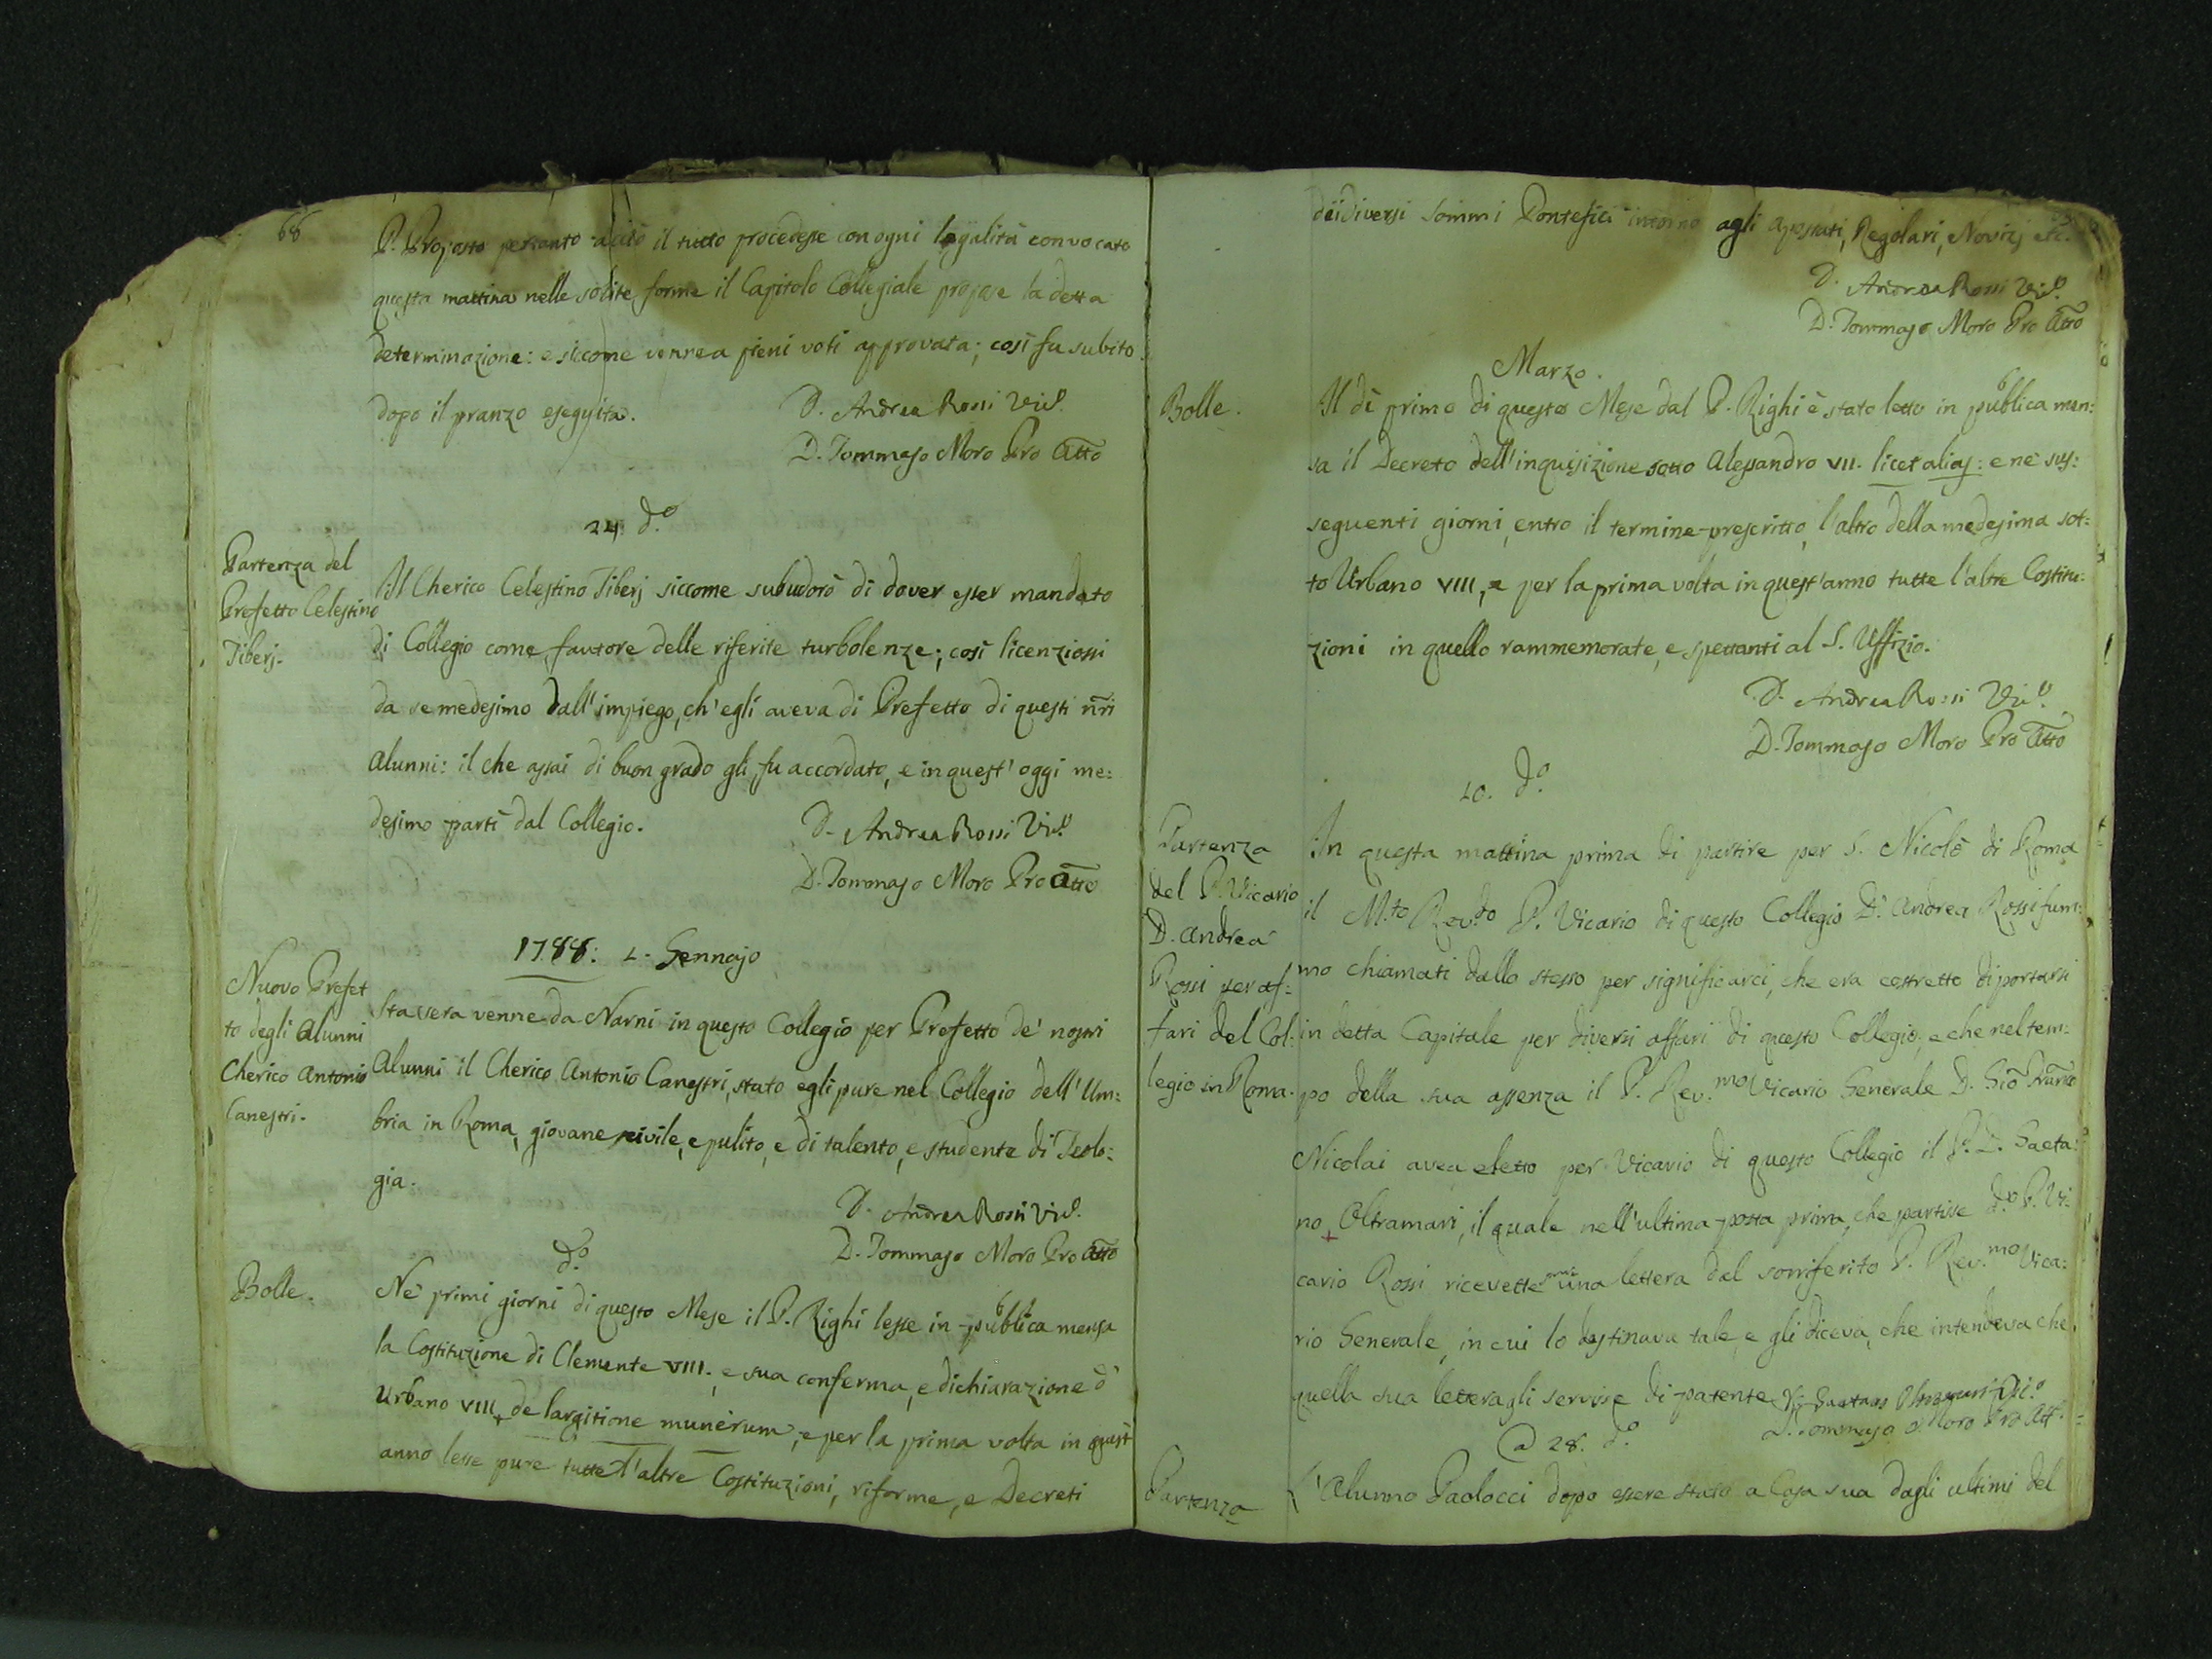 68
P. Proposto pertanto acciò il tutto procedesse con ogni legalità convocato
questa mattina nelle solite forme il Capitolo Collegiale propose la detta
determinazione: e siccome venne a pieni voti approvata; così fu subito
dopo il pranzo eseguita.
D. Andrea Rossi Vic.o
D. Tommaso Moro Pro Atto
24. d.o
Partenza del
Prefetto Celestino
Tiberj.
Il Cherico Celestino Tiberj siccome subudorò di dover esser mandato
di Collegio come fautore delle riferite turbolenze; così licenziossi
da se medesimo dall'impiego, ch'egli aveva di Prefetto di questi nri
Alunni: il che assai di buon grado gli fu accordato, e in quest'oggi me:
desimo partì dal Collegio.
D. Andrea Rossi Vic.o
D. Tommaso Moro Pro Atto
1788: 2. Gennajo
Nuovo Prefet
to degli Alunni
Cherico Antonio
Canestri.
Stassera venne da Narni in questo Collegio per Prefetto de' nostri
Alunni il Cherico Antonio Canestri, stato egli pure nel Collegio dell'Um:
bria in Roma, giovane civile, e pulito, e di talento, e studente di Teolo:
gia.
D. Andrea Rossi Vic.o
D. Tommaso Moro Pro Atto
d.o
Bolle.
Ne' primi giorni di questo Mese il P. Righi lesse in pubblica mensa
la Costituzione di Clemente VIII., e sua conferma, e dichiarazione d'
Urbano VIII, de largitione munerum, e per la prima volta in quest'
anno lesse pure tutte l'altre Costituzioni, riforme, e Decreti
dei diversi Sommi Pontefici intorno agli Apostati, Regolari, Novizj etc.
D. Andrea Rossi Vic.o
D. Tommaso Moro Pro Atto
Marzo.
Bolle.
Il dì primo di questo Mese dal P. Righi è stato letto in pubblica men:
sa il Decreto dell'inquisizione sotto Alessandro VII. licet alias: e ne' sus:
seguenti giorni, entro il termine prescritto, l'altro della medesima sot:
to Urbano VIII, e per la prima volta in quest'anno tutte l'altre Costitu:
zioni in quello rammemorate, e spettanti al S. Uffizio.
D. Andrea Rossi Vic.o
D. Tommaso Moro Pro Atto
10. d.o
Partenza
del P. Vicario
D. Andrea
Rossi per af:
fari del Col:
legio in Roma.
In questa mattina prima di partire per S. Nicolò di Roma
il M.to Rev.do P. Vicario di questo Collegio D. Andrea Rossi fum:
mo chiamati dallo stesso per significarci, che era costretto di portarsi
in detta Capitale per diversi affari di questo Collegio, e che nel tem:
po della sua assenza il P. Rev.mo Vicario Generale D. Gio Franco
Nicolai avea eletto per Vicario di questo Collegio il P. D. Gaeta:
no Oltramari, il quale nell'ultima posta prima, che partisse d.o P. Vi:
cario Rossi ricevette una lettera del sorriferito P. Rev.mo Vica:
rio Generale, in cui lo destinava tale, e gli diceva, che intendeva che
quella sua lettera gli servisse di patente
D. Gaetano Oltramari Vic.o
D. Tommaso Moro Pro Att.
@ 28. d.o
Partenza
L'Alunno Paolocci dopo essere stato a Casa sua dagli ultimi del